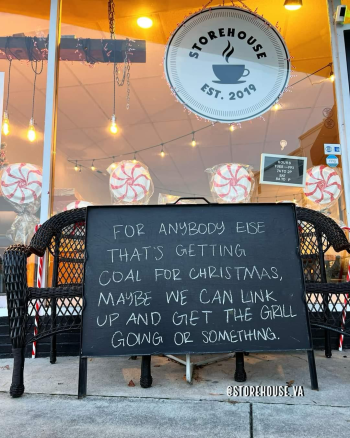 STOREHOUSE
EST. 2019
FOR ANYBODY ELSE
THAT'S GETTING
COAL FOR CHRISTMAS,
MAYBE WE CAN LINK
UP AND GET THE GRILL
GOING OR SOMETHING.
@STOREHOUSE.VA